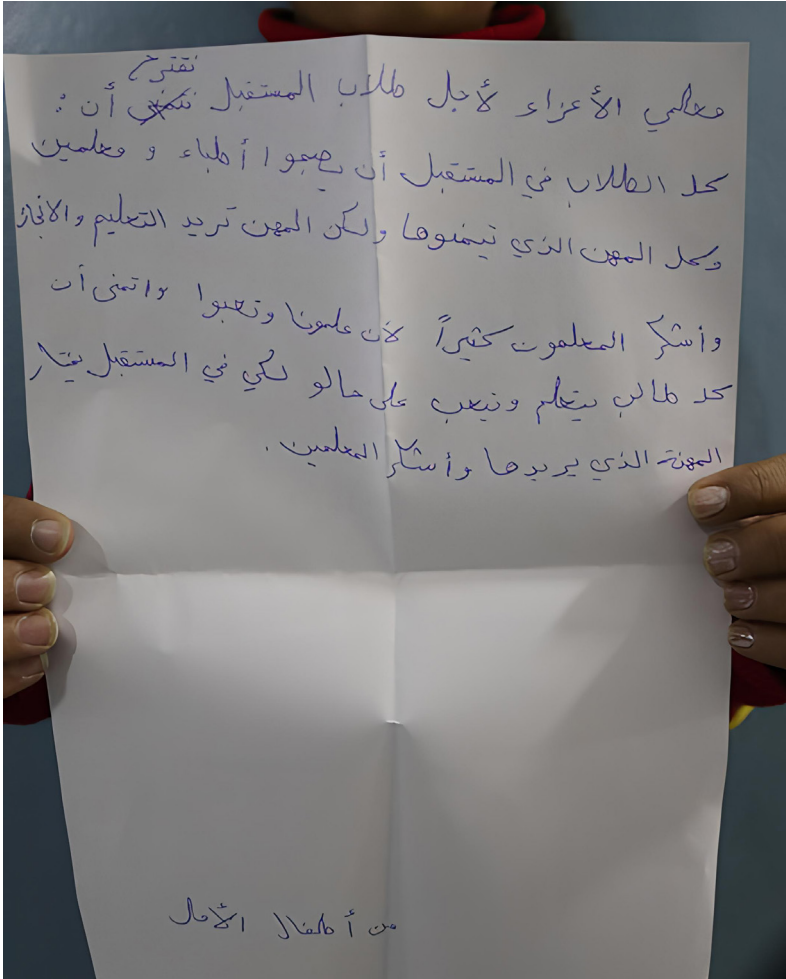 نقترح
معلمي الأعزاء لأجل طلاب المستقبل نتمنى أن :
كل الطلاب في المستقبل أن يصبحوا أطباء و معلمين
وكل المهن الذي تيمنوها ولكن المهن تريد التعليم والانجاز
وأشكر المعلمون كثيراً لأن علمونا وتعبوا واتمنى أن
كل طالب يتعلم ويتعب على حالو لكي في المستقبل يختار
المهنة الذي يريدها وأشكر المعلمين .
من أطفال الأمل